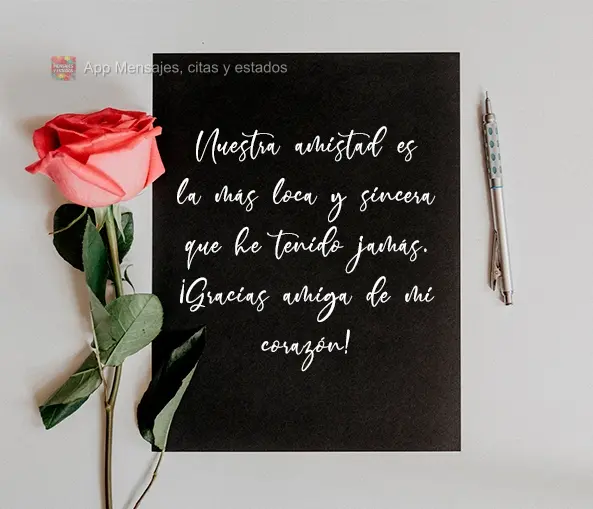 App Mensajes, citas y estados
Nuestra amistad es
la más loca y sincera
que he tenido jamás.
¡Gracias amiga de mi
corazón!